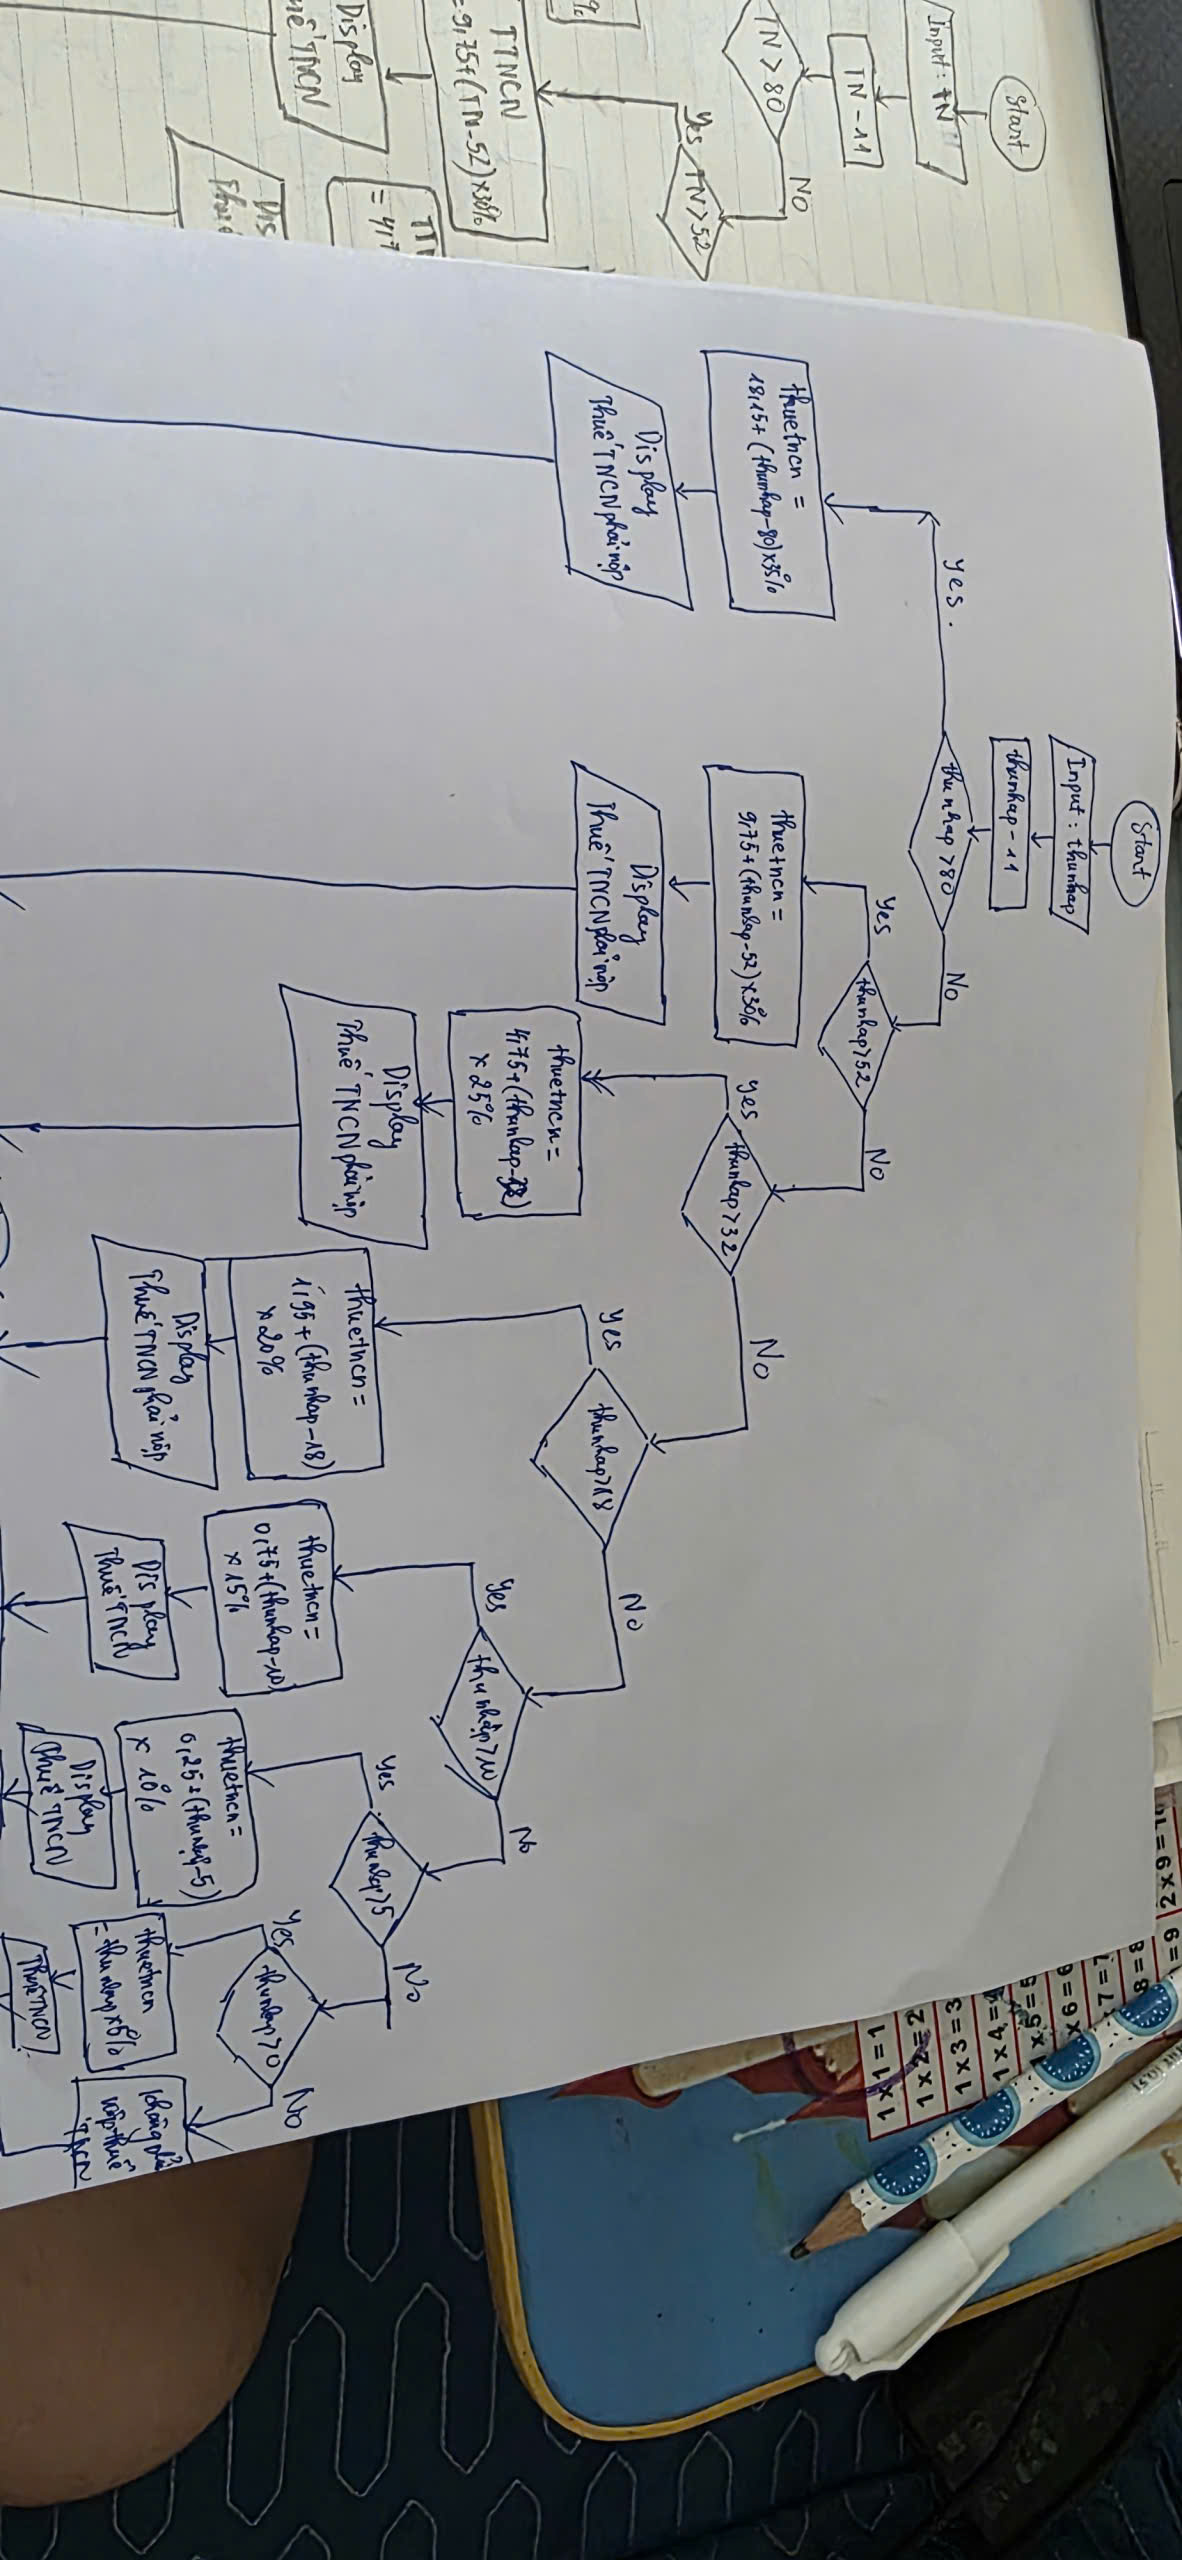 Start
Input: TN
TN - 11
TN > 80
No
TN > 52
Yes
TTNCN
= 9,75 + (TN - 52) x 30%
Display
TNCN
Start
Input: thunhap
thunhap - 11
thunhap > 80
yes.
No
thuetncn =
18,15 + (thunhap - 80) x 35%
Display
Thuế TNCN phải nộp
thunhap > 52
Yes
No
thuetncn =
9,75 + (thunhap - 52) x 30%
Display
Thuế TNCN phải nộp
thunhap > 32
yes
No
thuetncn =
4,75 + (thunhap - 32)
x 25%
Display
Thuế TNCN phải nộp
thunhap > 18
yes
No
thuetncn =
1,95 + (thunhap - 18)
x 20%
Display
Thuế TNCN phải nộp
thu nhập > 10
Yes
No
thuetncn =
0,75 + (thunhap - 10)
x 15%
Display
Thuế TNCN
thunhap > 5
yes
No
thuetncn =
0,25 + (thunhap - 5)
x 10%
Display
Thuế TNCN
thunhap > 0
yes
No
thuetncn
= thunhap x 5%
Thuế TNCN
không
nộp thuế
TNCN
1 x 1 = 1
1 x 2 = 2
1 x 3 = 3
1 x 4 =
1 x 5 = 5
x 6 = 6
7 = 7
8 = 8
= 9
2 x 9 = 1